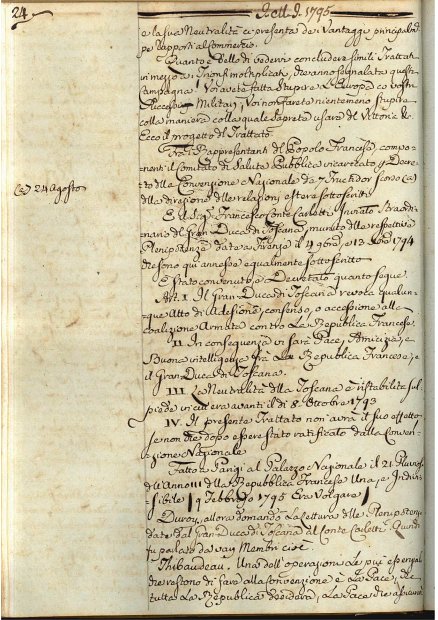 24.
1795
e la sua Neutralità ci presenta dei Vantaggi principalm.
pe' rapporti al Commercio.
Quanto è bello di vedervi concludere simili Trattati
in mezzo a' Trionfi moltiplicati, che anno segnalata questa
Campagna! Voi avete fatta Stupire l'Europa co' vostri
Successi Militari, Voi non farete nientemeno stupire
colla maniera colla quale saprete usare del
Ecco il progetto di Trattato.
I Rappresentanti del Popolo Francese, compo-
nenti il Comitato di Salute Pubblica incaricato
della Convenzione Nazionale de' 7 Fructidor scorso (a)
della direzione delle relazioni estere sottoscritti
(a) 24 Agosto
E il Sig. Francesco Conte Carletti Inviato Straordi-
nario del Gran Duca di Toscana, munito delle respettive
Plenipotenze date a Firenze il 4 9bre, e 13 1794
che sono qui annesse egualmente sottoscritto
È stato convenuto, e Decretato quanto segue.
Art. I. Il Gran Duca di Toscana revoca qualun-
que Atto di Adesione, consenso, o accessione alla
coalizione Armata contro La Repubblica Francese.
II. In conseguenza vi sarà Pace, Amicizia, e
Buona intelligenza frà La Repubblica Francese, e
il Gran Duca di Toscana.
III. La Neutralità della Toscana è ristabilita sul
piede in cui era avanti il dì 8 Ottobre 1793
IV. Il presente Trattato non avrà il suo effetto
se non che dopo essere stato ratificato dalla Conven-
zione Nazionale
Fatto a Parigi al Palazzo Nazionale il 21 Pluvios
dell'Anno III della Repubblica Francese Una, e Indivi-
sibile / 9 Febbraio 1795 Era Volgare /
Duroy, allora domandò La Lettura delle Plenipotenze
date dal Gran Duca di Toscana al Conte Carletti. Quindi
fu parlato da varj Membri cioè
Thibaudeau. Una dell'operazioni Le più essenziali
che restono di fare alla Convenzione è La Pace, che
tutta La Repubblica desidera, La Pace che assicura